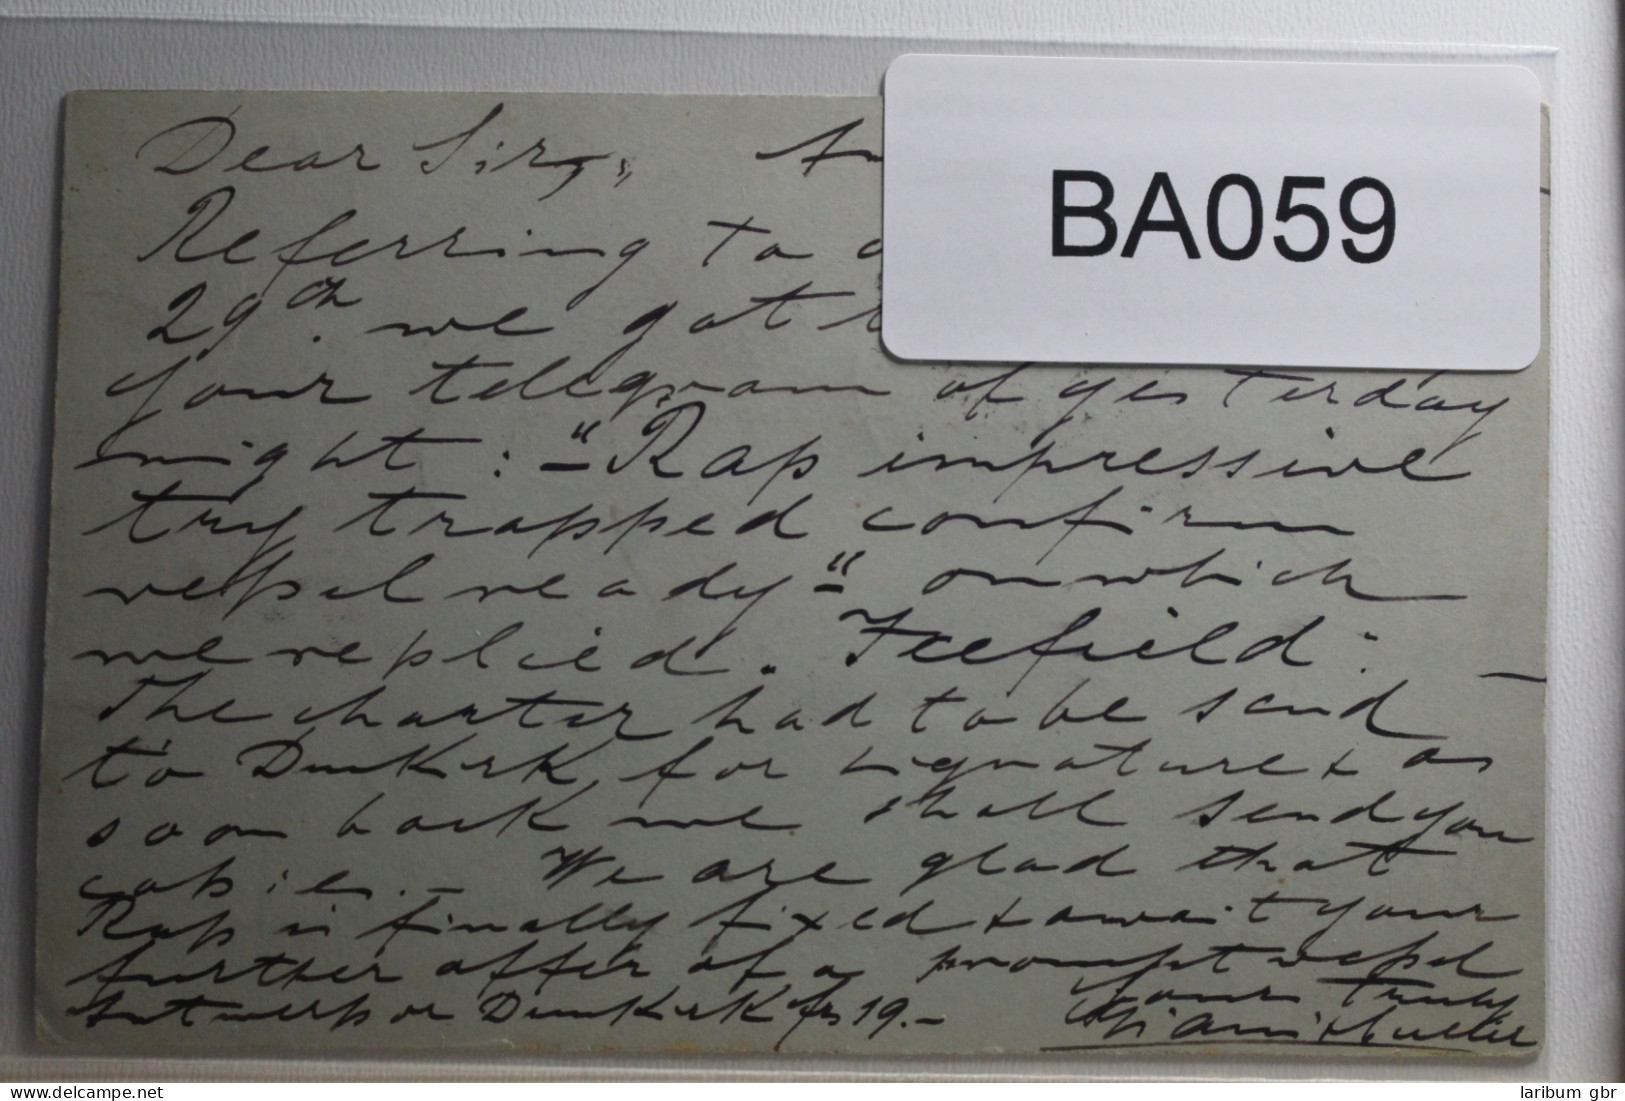 Dear Sirs,
BA059
Referring to
29th. we got
your telegram of yesterday
night: "Rap impressive
try trapped confirm
vessel ready" on which
we replied. Icefield:
The charter had to be send
to Dunkirk, for signature & as
soon back we shall send you
copies. - We are glad that
Rap is finally fixed & await your
further offer of a prompt vessel
Antwerp or Dunkirk frs 19.-
Yours truly
delcampe.net
laribum gbr